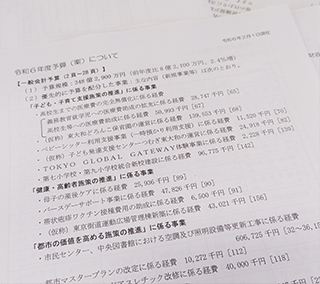 令和6年2月1日
令和6年度予算(案)について
【一般会計予算(2頁~28頁)】
(1)予算規模:349億2,900万円(前年度比8億2,100万円、2.4%増)
(2)優先的に予算を配分した事業:主な内容(新規事業等)は次のとおり。
「子ども・子育て支援施策の推進」に係る事業
・高校生までの医療費の完全無償化に係る経費
義務教育就学児への医療費助成の拡充に係る経費 28,747千円[65]
高校生等への医療費助成に係る経費 50,993千円[67]
・(仮称)東大和どろんこ保育園の運営に係る経費 139,653千円
・ベビーシッター利用支援事業(一時預かり利用支援)に係る経費 11,520千円
・(仮称)子ども発達支援センターつむぎ東大和の運営に係る経費 24,928千円
・TOKYO GLOBAL GATEWAY体験事業に係る経費 2,228千円
・第七小学校・第九小学校統合新校建設に係る経費 96,775千円[142]
「健康・高齢者施策の推進」に係る事業
・母子の産後ケアに係る経費 25,936千円[89]
・バースデーサポート事業に係る経費 47,826千円[90]
・帯状疱疹ワクチン接種費用の助成に係る経費 6,500千円[91]
・(仮称)東京街道運動広場管理棟新築に係る経費 43,021千円[156]
「都市の価値を高める施策の推進」に係る事業
・市民センター、中央図書館における空調及び照明設備等更新工事に係る経費
606,725千円[32~
都市マスタープランの改定に係る経費 10,272千円[112]
アスレチック改修に係る経費 40,000千円[118]